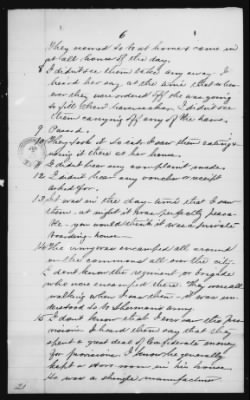 6
They seemed to to at home & came in
at all hours of the day.
8 I didn't see them take any away. I
heard her say at the time that when
ever they were ordered off she was going
to fill their haversacks. I didn't see
them carrying off any of the hams.
9 Passed.
10 They took it to eat. I saw them eating
it there at her house.
11 I didn't hear any complaint made.
12 I didn't hear any voucher or receipt
asked for.
13 It was in the day time that I saw
them - at night it was perfectly peace
able - you would think it was a private
boarding house.
14 The army was encamped all around
on the commons all over the city.
I don't know the regiment or brigade
who were encamped there. They were all
walking when I saw them - it was un
derstood to be Sherman's army.
15 I don't know that I ever saw this pro
vision. I heard them say that they
spent a great deal of Confederate money
for provisions. I know he generally
kept a store room in his house.
He was a shingle manufacturer
21